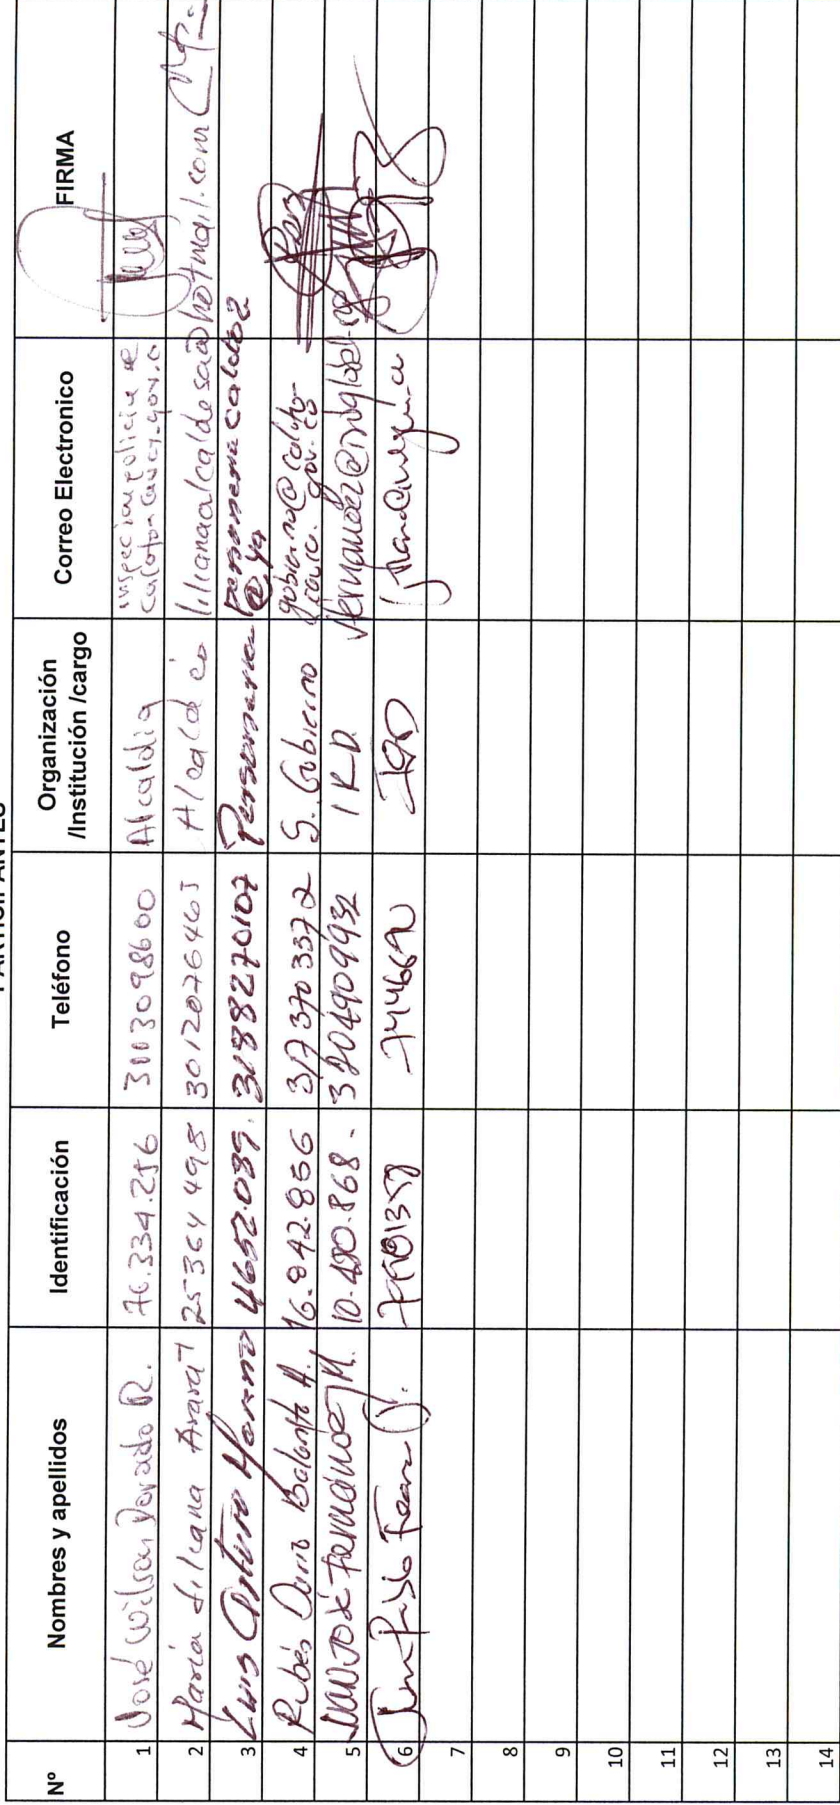 PARTICIPANTES
Nº Nombres y apellidos Identificación Teléfono Organización /Institución /cargo Correo Electronico FIRMA
1 José Wilson Dorado R. 76.334.256 3113098600 Alcaldia inspeccionpolicia@
caloto-cauca.gov.co
2 Maria Liliana Ararat 25364498 3012076463 Alcaldia lilianaalcaldesa@hotmail.com
3 Luis Arturo Moreno 4652.039. 3188270107 Personeria personeriacaloto2
@ya
4 Rubén Dario Balanta A. 16.842.856 3173703372 S. Gobierno gobierno@caloto-
cauca.gov.co
5 José Fernández M. 10.490.868- 3204909932 IRD
6 Juan Pablo 7446690
7
8
9
10
11
12
13
14